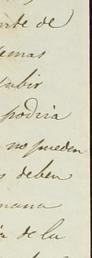 nte de
emas
subir
podria
no pueden
s deben
mana
de la